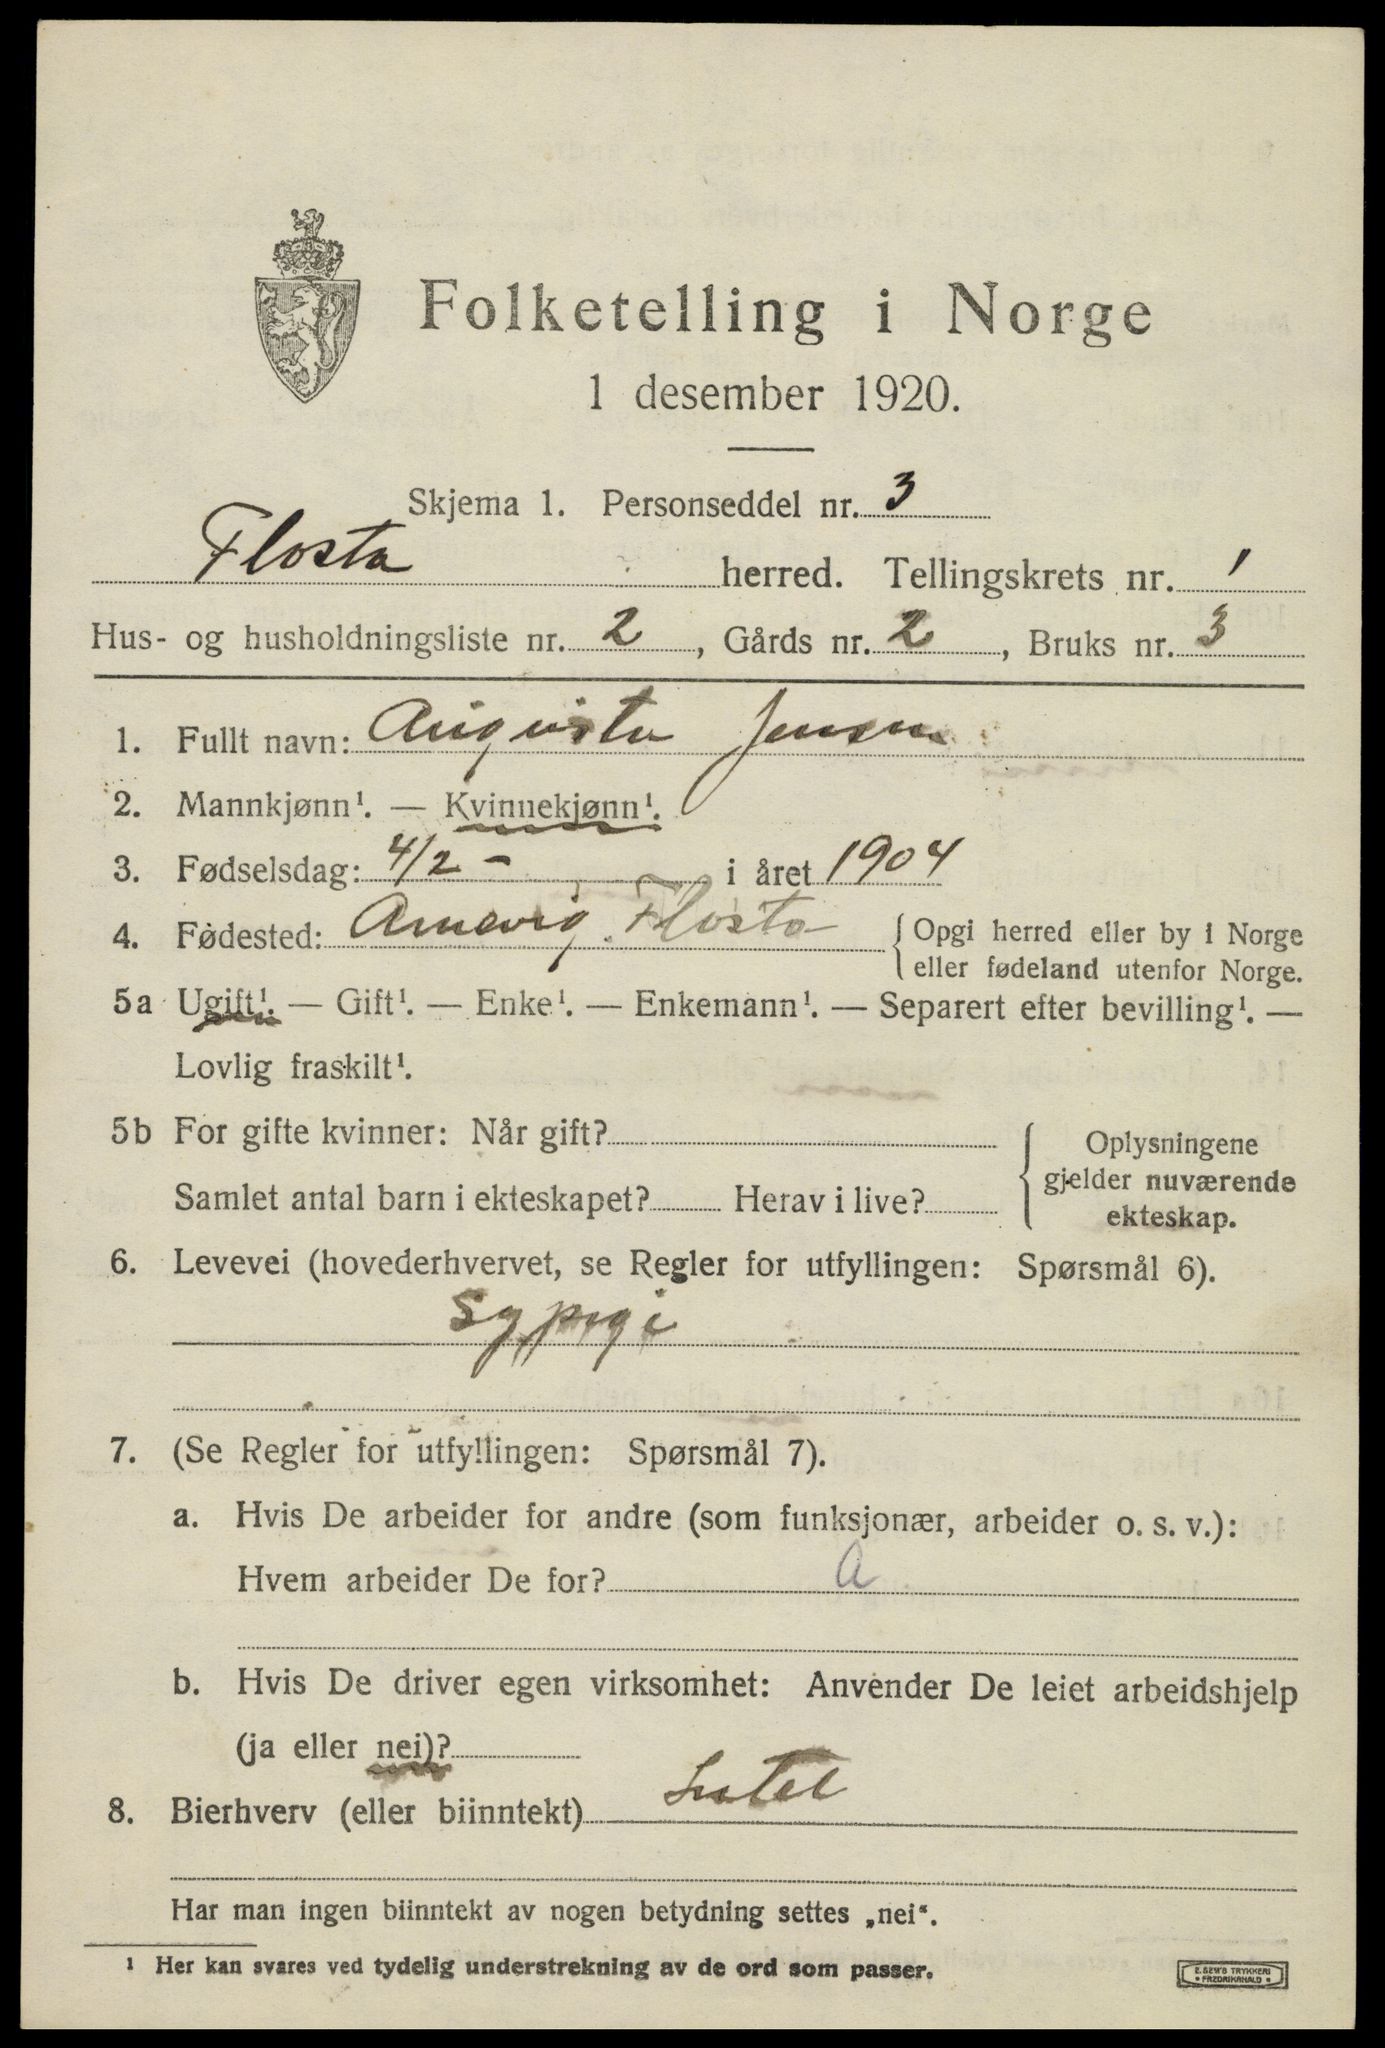 Folketelling i Norge
1 desember 1920.
Skjema 1. Personseddel nr. 3
Flosta herred. Tellingskrets nr. 1
Hus- og husholdningsliste nr. 2, Gårds nr. 2, Bruks nr. 3
1. Fullt navn: Augusta Jensen
2. Mannkjønn¹. — Kvinnekjønn¹.
3. Fødselsdag: 4/2 - i året 1904
4. Fødested: Arnevig. Flosta { Opgi herred eller by i Norge
eller fødeland utenfor Norge.
5a Ugift¹. — Gift¹. — Enke¹. — Enkemann¹. — Separert efter bevilling¹. —
Lovlig fraskilt¹.
5b For gifte kvinner: Når gift?
Samlet antal barn i ekteskapet? Herav i live?
{ Oplysningene
gjelder nuværende
ekteskap.
6. Levevei (hovederhvervet, se Regler for utfyllingen: Spørsmål 6).
Sypige
7. (Se Regler for utfyllingen: Spørsmål 7).
a. Hvis De arbeider for andre (som funksjonær, arbeider o. s. v.):
Hvem arbeider De for? a
b. Hvis De driver egen virksomhet: Anvender De leiet arbeidshjelp
(ja eller nei)?
8. Bierhverv (eller biinntekt) Intet
Har man ingen biinntekt av nogen betydning settes „nei“.
¹ Her kan svares ved tydelig understrekning av de ord som passer.
E. SEM'S TRYKKERI
• FREDRIKSHALD •